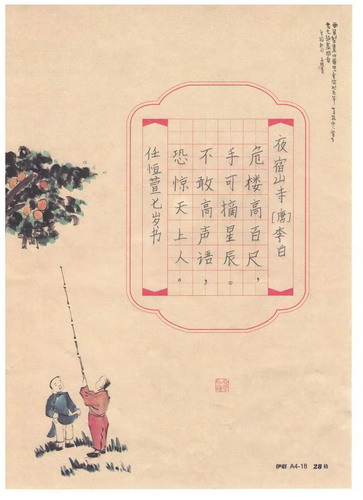 夜宿山寺[唐]李白
危楼高百尺，
手可摘星辰。
不敢高声语，
恐惊天上人。
任恒萱七岁书
伊君 A4-18 28格